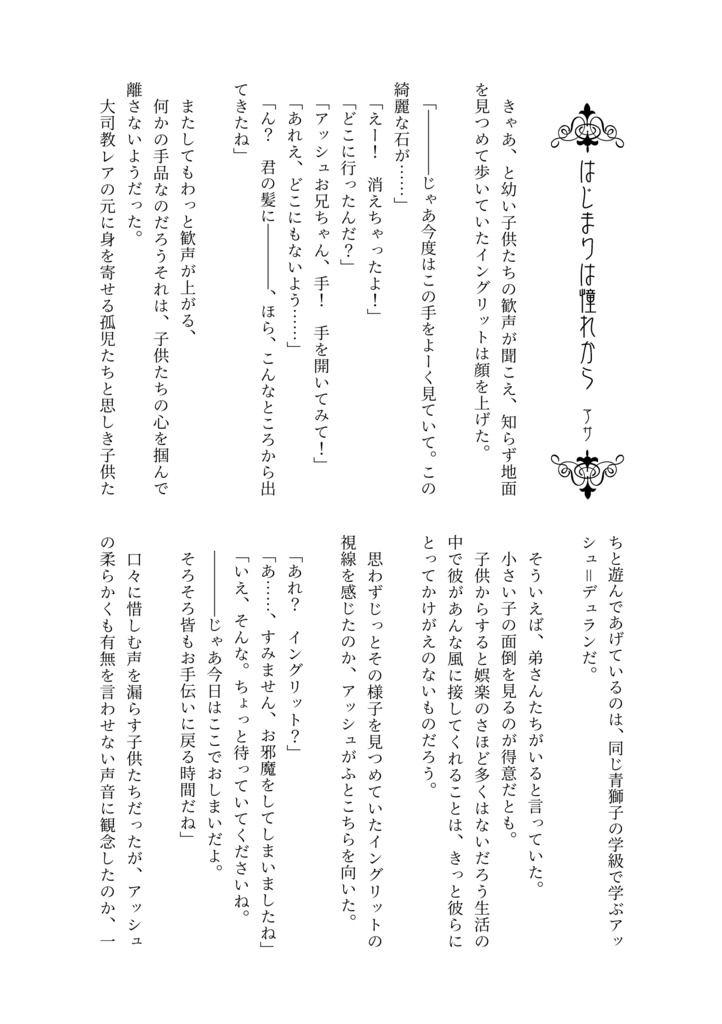 はじまりは憧れから　アサ
きゃあ、と幼い子供たちの歓声が聞こえ、知らず地面
を見つめて歩いていたイングリットは顔を上げた。
「――――じゃあ今度はこの手をよーく見ていて。この
綺麗な石が……」
「えー！　消えちゃったよ！」
「どこに行ったんだ？」
「アッシュお兄ちゃん、手！　手を開いてみて！」
「あれえ、どこにもないよう……」
「ん？　君の髪に――――、ほら、こんなところから出
てきたね」
またしてもわっと歓声が上がる、
何かの手品なのだろうそれは、子供たちの心を掴んで
離さないようだった。
大司教レアの元に身を寄せる孤児たちと思しき子供た
ちと遊んであげているのは、同じ青獅子の学級で学ぶアッ
シュ＝デュランだ。
そういえば、弟さんたちがいると言っていた。
小さい子の面倒を見るのが得意だとも。
子供からすると娯楽のさほど多くはないだろう生活の
中で彼があんな風に接してくれることは、きっと彼らに
とってかけがえのないものだろう。
思わずじっとその様子を見つめていたイングリットの
視線を感じたのか、アッシュがふとこちらを向いた。
「あれ？　イングリット？」
「あ……、すみません、お邪魔をしてしまいましたね」
「いえ、そんな。ちょっと待っていてくださいね。
――――じゃあ今日はここでおしまいだよ。
そろそろ皆もお手伝いに戻る時間だね」
口々に惜しむ声を漏らす子供たちだったが、アッシュ
の柔らかくも有無を言わせない声音に観念したのか、一